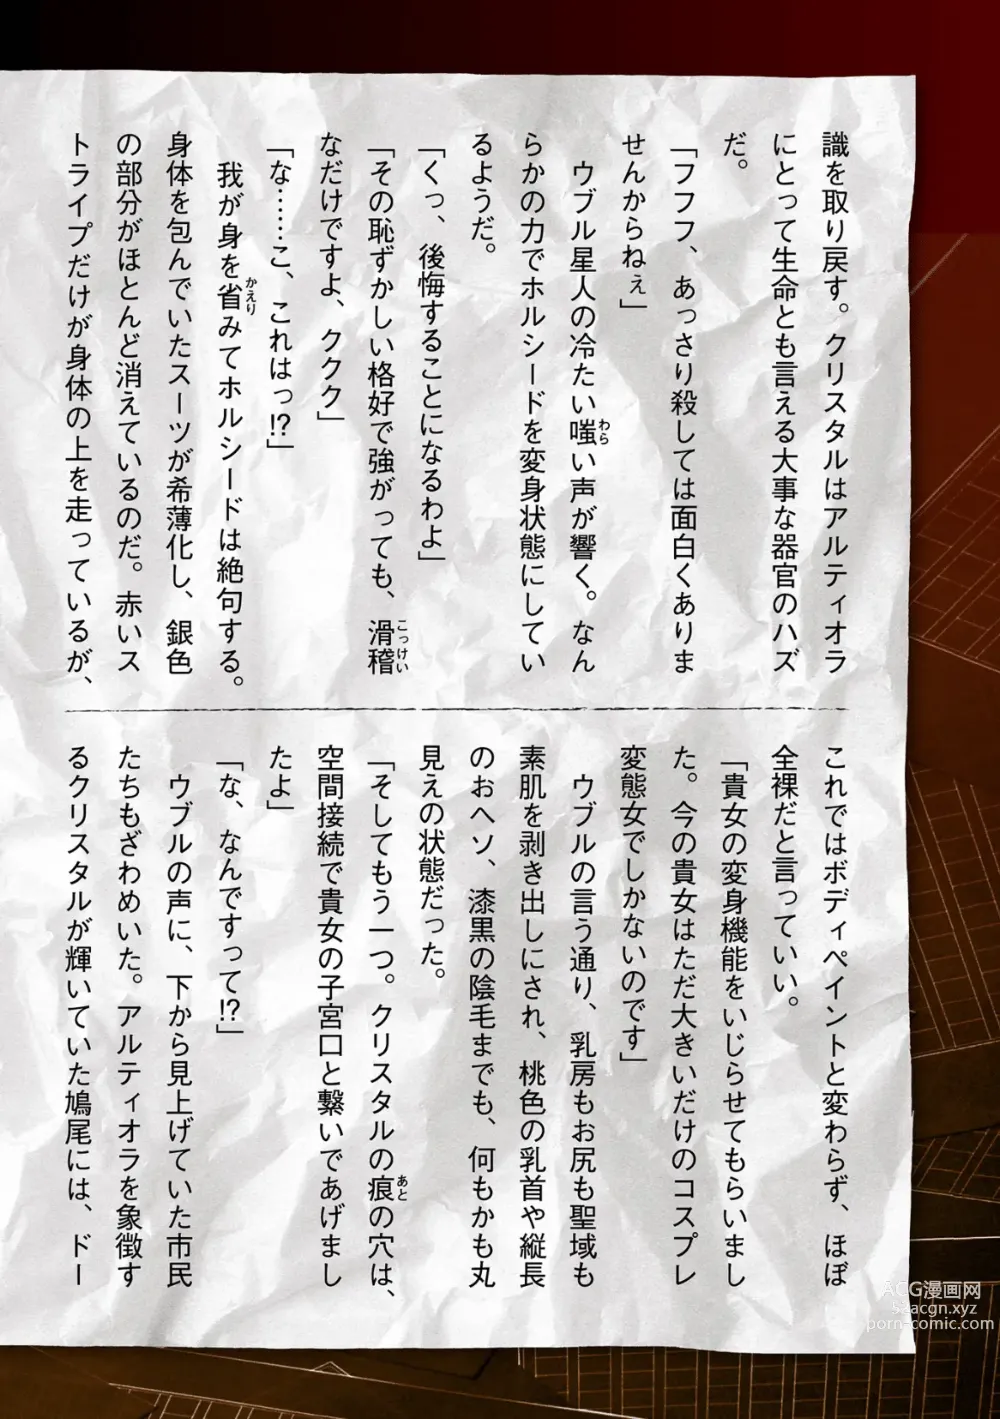 識を取り戻す。クリスタルはアルティオラ
にとって生命とも言える大事な器官のハズ
だ。
「フフフ、あっさり殺しては面白くありま
せんからねぇ」
　ウブル星人の冷たい嗤い声が響く。なん
らかの力でホルシードを変身状態にしてい
るようだ。
「くっ、後悔することになるわよ」
「その恥ずかしい格好で強がっても、滑稽
なだけですよ、ククク」
「な……こ、これはっ!?」
　我が身を省みてホルシードは絶句する。
身体を包んでいたスーツが希薄化し、銀色
の部分がほとんど消えているのだ。赤いス
トライプだけが身体の上を走っているが、
これではボディペイントと変わらず、ほぼ
全裸だと言っていい。
「貴女の変身機能をいじらせてもらいまし
た。今の貴女はただ大きいだけのコスプレ
変態女でしかないのです」
　ウブルの言う通り、乳房もお尻も聖域も
素肌を剥き出しにされ、桃色の乳首や縦長
のおヘソ、漆黒の陰毛までも、何もかも丸
見えの状態だった。
「そしてもう一つ。クリスタルの痕の穴は、
空間接続で貴女の子宮口と繋いであげまし
たよ」
「な、なんですって!?」
　ウブルの声に、下から見上げていた市民
たちもざわめいた。アルティオラを象徴す
るクリスタルが輝いていた鳩尾には、ドー
わら
かえり
こっけい
あと
ACG漫画网
52acgn.xyz
porn-comic.com